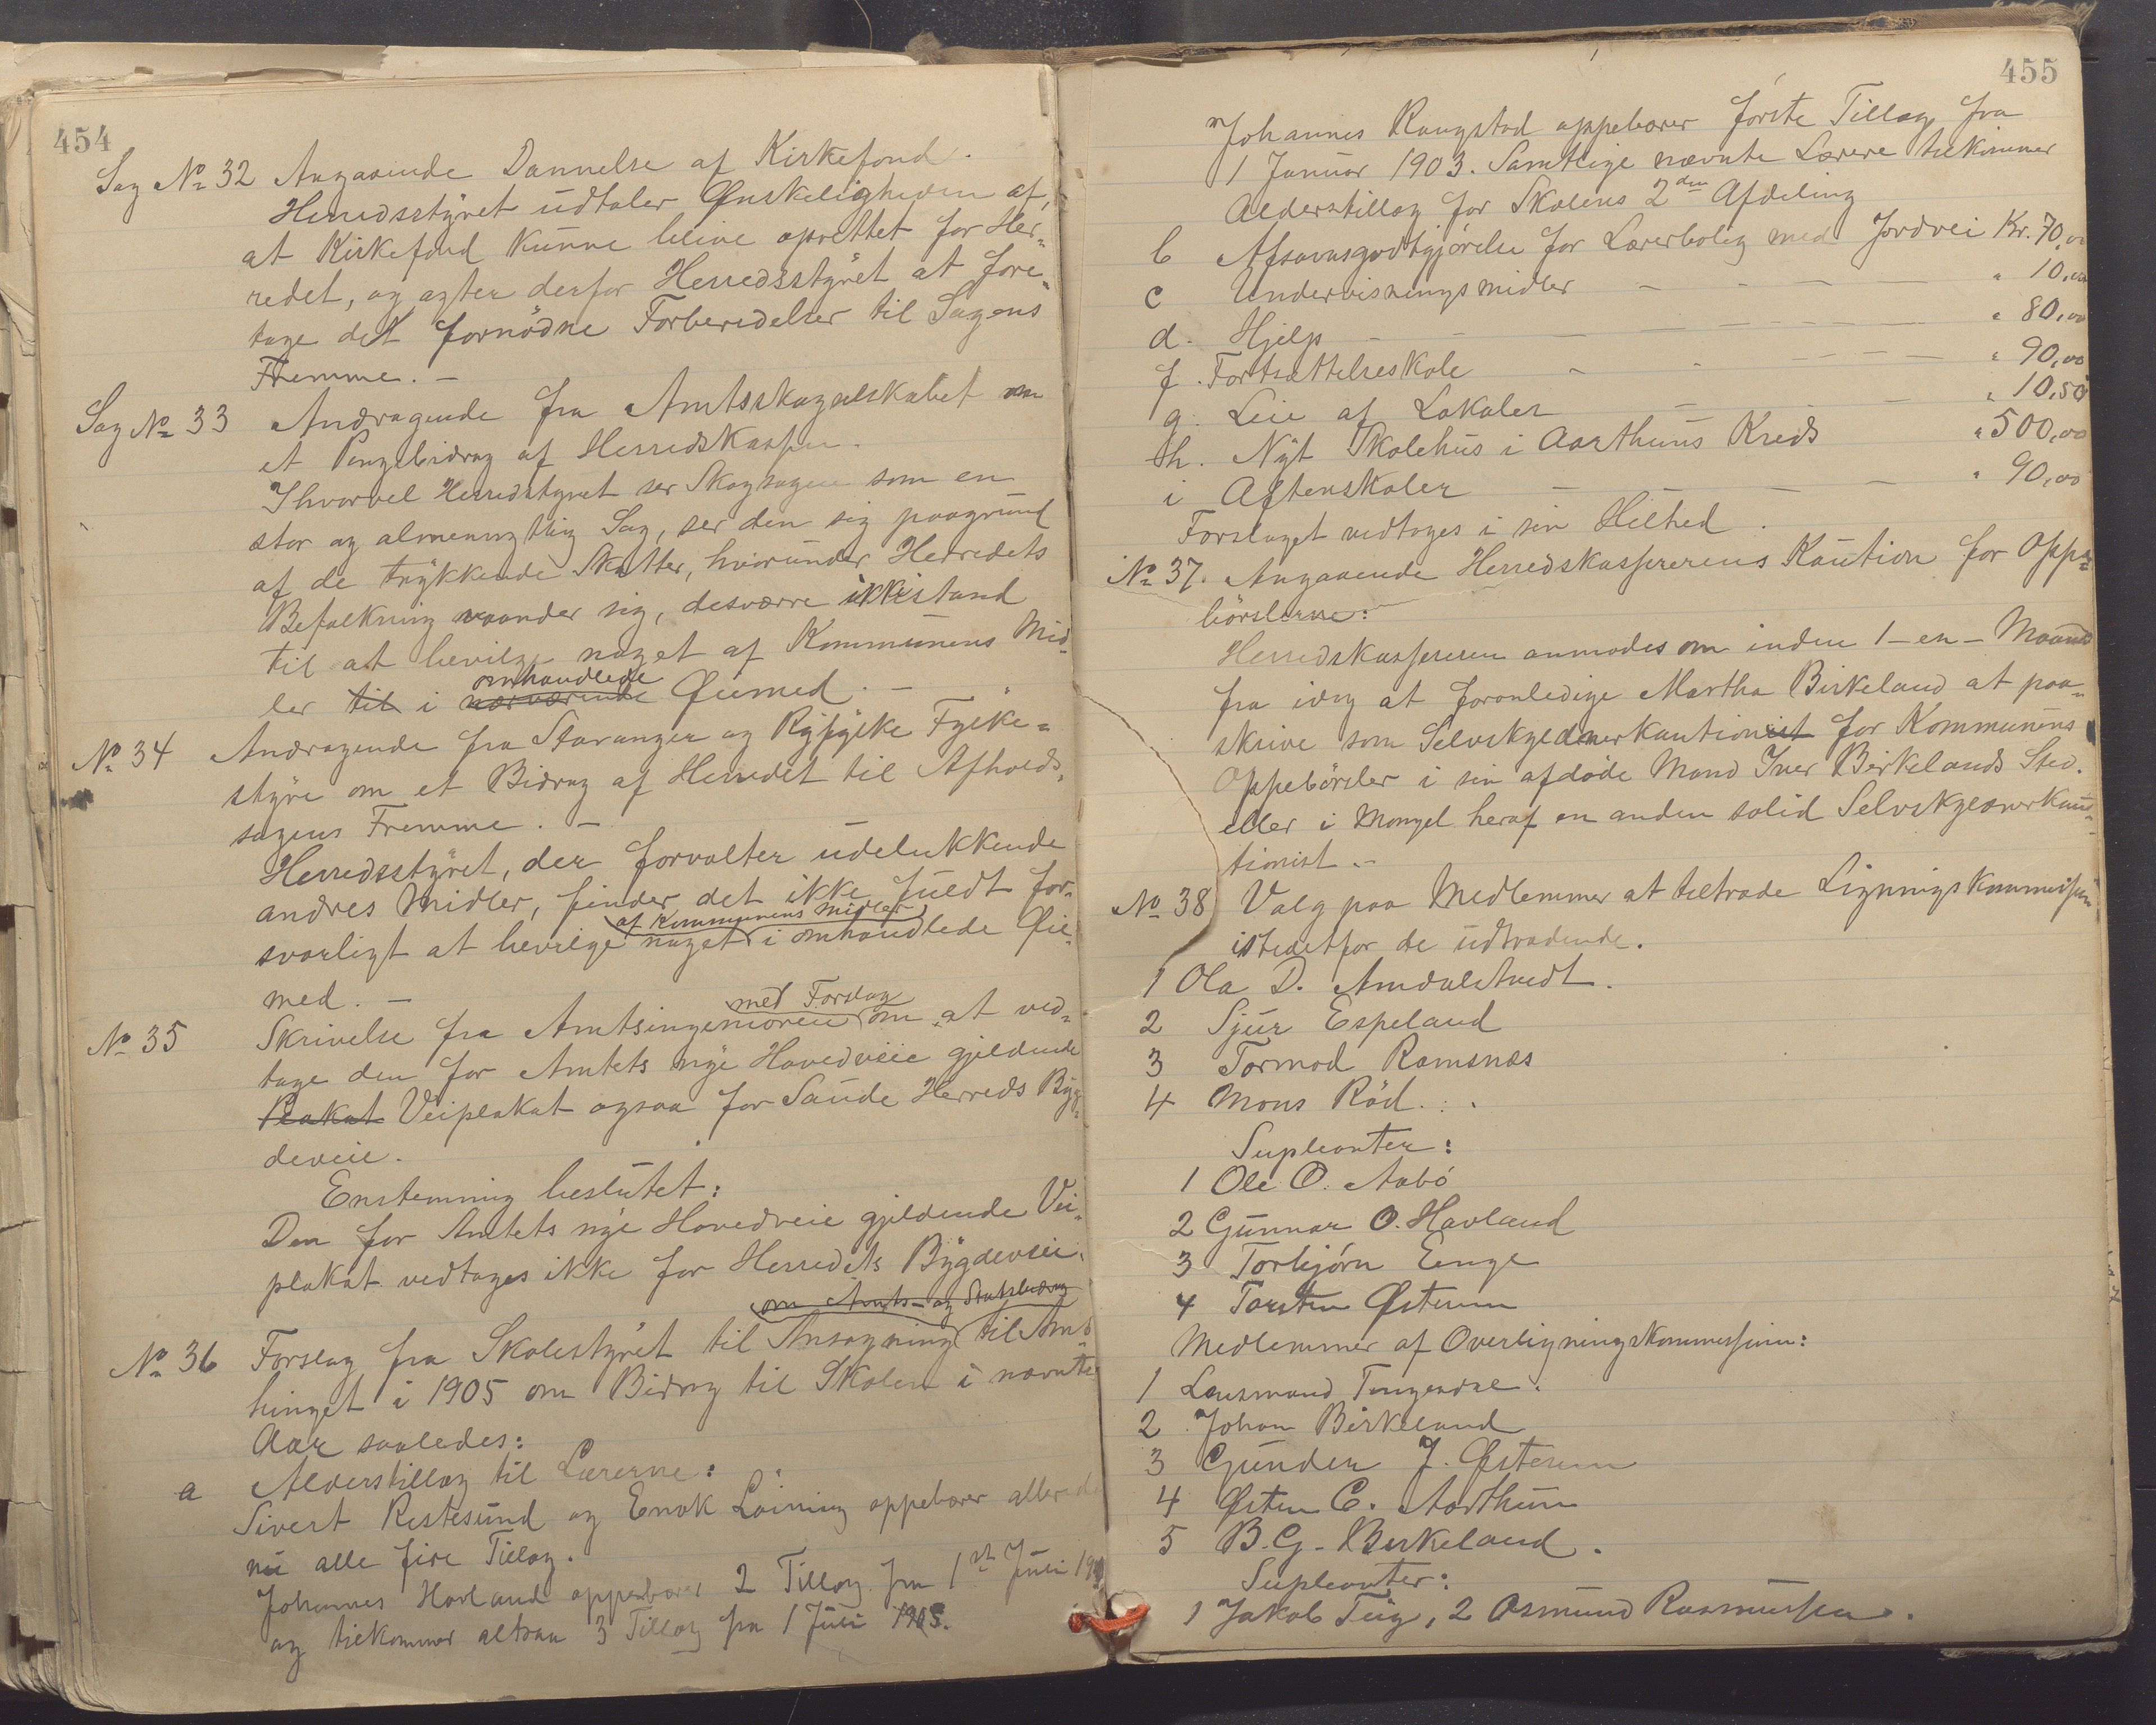 454
Sag No 32 Angaaende Dannelse af Kirkefond.
Herredsstyret udtaler Ønskeligheden af,
at Kirkefond kunne blive oprettet for Her-
redet, og agter derfor Herredsstyret at fore-
tage det fornödne Forberedelser til Sagens
Fremme. —
Sag No 33 Andragende fra Amtsskogselskabet om
et Pengebidrag af Herredskassen.
Ihvorvel Herredstyret ser Skogsagen som en
stor og almennyttig Sag, ser den sig paagrund
af de trykkende Skatter, hvorunder Herredets
Befolkning vaander sig, desværre ikke istand
til at bevilge noget af Kommunens Mid-
omhandlede
ler til i nærværende Öiemed. —
No 34 Andragende fra Stavanger og Ryfylke Fylke-
styre om et Bidrag af Herredet til Afholds-
sagens Fremme. —
Herredsstyret, der forvalter udelukkende
andres Midler, finder det ikke fuldt for-
af Kommunens Midler
svarligt at bevilge noget i omhandlede Öie-
med. —
med Forslag
No 35 Skrivelse fra Amtsingeniøren om at ved-
tage den for Amtets nye Hovedveie gjeldende
Plakat Veiplakat ogsaa for Saude Herreds Byg-
deveie.
Enstemmig beslutet:
Den for Amtets nye Hovedveie gjeldende Vei-
plakat vedtages ikke for Herredets Bygdeveie.
om Amts- og Statsbidrag
No 36 Forslag fra Skolestyret til Ansøgning til Amts
tinget i 1905 om Bidrag til Skolen i nævnte
Aar saaledes:
a Alderstillæg til Lærerne:
Sivert Restesund og Enok Löining oppebærer allerede
nu alle fire Tillæg.
Johannes Havland oppebærer 2 Tillæg fra 1st Juli
og tilkommer altsaa 3 Tillæg fra 1 Juli 1905.
455
Johannes Raugstad oppebærer förste Tillæg fra
1 Januar 1903. Samtlige nævnte Lærere tilkommer
Alderstillæg for Skolens 2den Afdeling
b Afsavnsgodtgjörelse for Lærerbolig med Jordvei Kr. 70,00
c Undervisningsmidler — — — " 10,00
d. Hjelp — — — " 80,00
f. Fortsættelseskole - - — — " 90,00
g. Leie af Lokaler — — — " 10,50
h. Nyt Skolehus i Aarthuns Kreds " 500,00
i Aftenskoler — — — " 90,00
Forslaget vedtages i sin Helhed.
No 37. Angaaende Herredskassererens Kaution for Oppe-
börslerne:
Herredskassereren anmodes om inden 1-en- Maaned
fra idag at foranledige Martha Birkeland at paa-
skrive som Selvskyldnerkautionist for Kommunens
Oppebörsler i sin afdöde Mand Iver Birkelands Sted.
eller i Mangel heraf en anden solid Selvskyldnerkau-
tionist. -
No 38 Valg paa Medlemmer at tiltræde Ligningskommissionen
istedetfor de udtrædende.
1 Ola D. Amdalstvedt.
2 Sjur Espeland
3 Tormod Ramsnæs
4 Mons Röd. . .
Supleanter:
1 Ole O. Aabö
2 Gunnar O. Havland
3 Torbjörn Enge
4 Torsten Østerim
Medlemmer af Overligningskommissjonen:
1 Lensmand Tengesdal.
2 Johan Birkeland
3 Gunder J. Østerim
4 Østen C. Aarthun
5 B. G. Birkeland.
Supleanter:
1 Jakob Tuig, 2 Osmund Rasmussen.